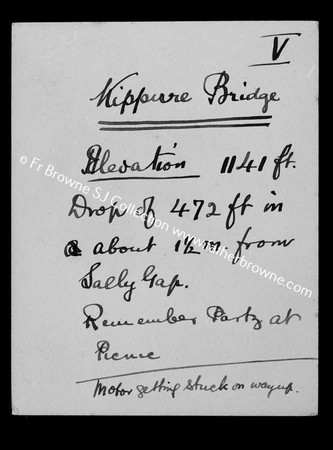 V
Kippure Bridge
Elevation 1141 ft.
Drop of 472 ft in
about 1½ m. from
Sally Gap.
Remember Party at
Picnic
Motor getting stuck on way up.
© Fr Browne SJ Collection www.fatherbrowne.com